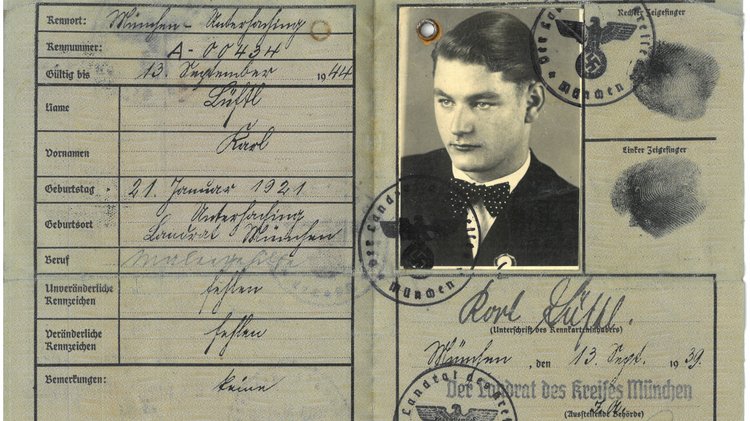 Kennort: München - Unterhaching
Kennummer: A-00434
Gültig bis 13. September 1944
Name Lüftl
Vornamen Karl
Geburtstag 21. Januar 1921
Geburtsort Unterhaching
Landrat München
Beruf Malergehilfe
Unveränderliche
Kennzeichen fehlen
Veränderliche
Kennzeichen fehlen
Bemerkungen: keine
Rechter Zeigefinger
München
Linker Zeigefinger
Der Landrat
München
Karl Lüftl.
(Unterschrift des Kennkarteninhabers)
München, den 13. Sept. 1939.
Der Landrat des Kreises München
(Ausstellende Behörde)